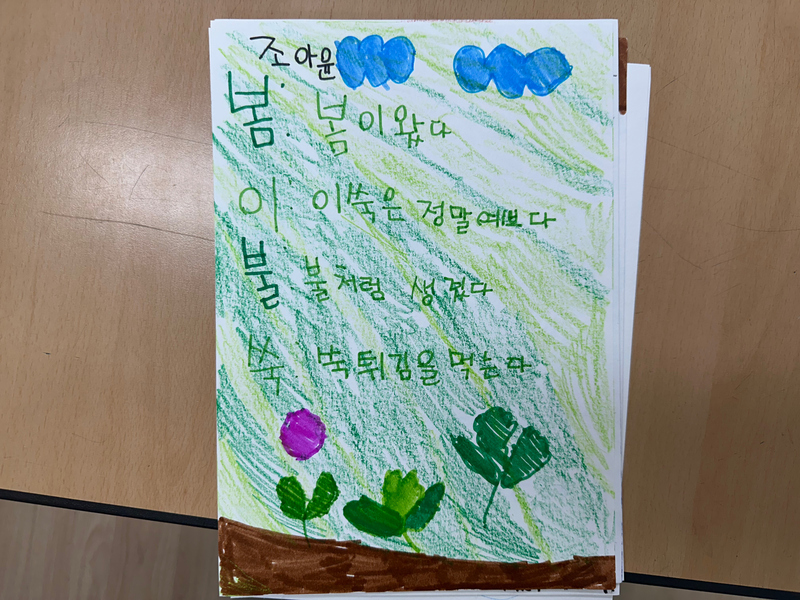 조아윤
봄: 봄이 왔다
이: 이쑥은 정말 예쁘다
불 불처럼 생겼다
쑥 쑥튀김을 먹는다